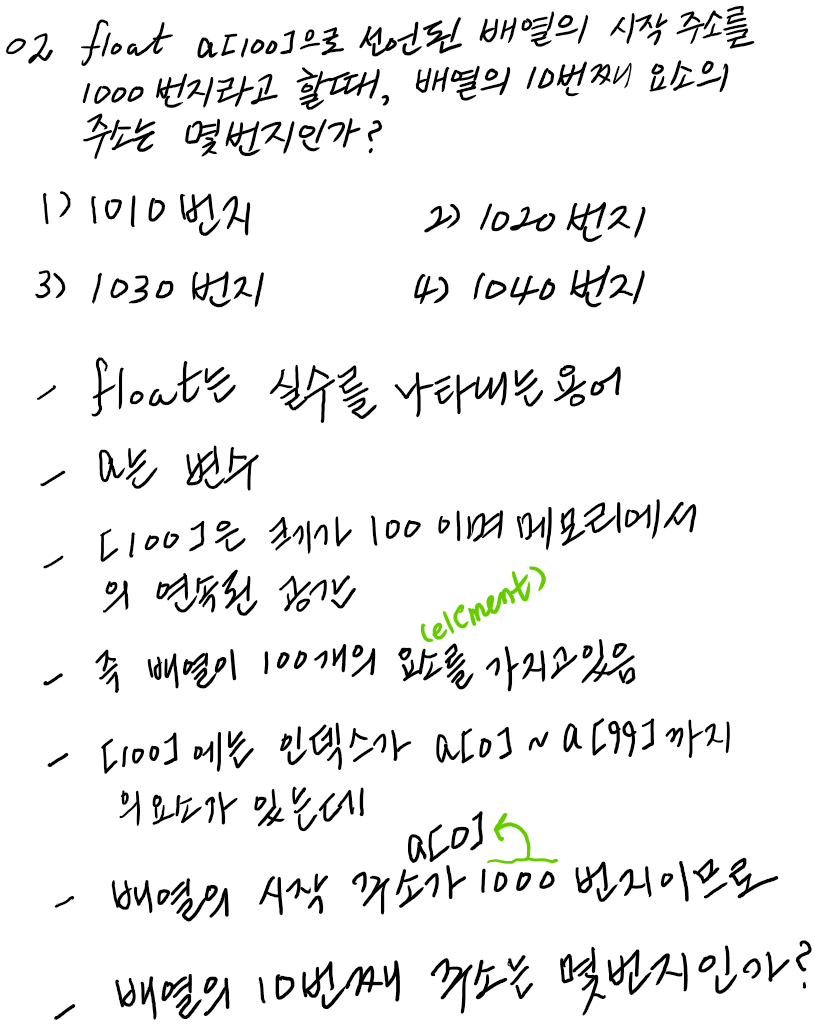 02 float a[100]으로 선언된 배열의 시작 주소를
1000 번지라고 할때, 배열의 10번째 요소의
주소는 몇번지인가?
1) 1010 번지 2) 1020 번지
3) 1030 번지 4) 1040 번지
- float는 실수를 나타내는 용어
- a는 변수
- [100]은 크기가 100 이며 메모리에서
의 연속된 공간
(element)
- 즉 배열이 100개의 요소를 가지고있음
- [100]에는 인덱스가 a[0] ~ a[99]까지
의요소가 있는데
a[0]
- 배열의 시작 주소가 1000 번지이므로
- 배열의 10번째 주소는 몇번지인가?